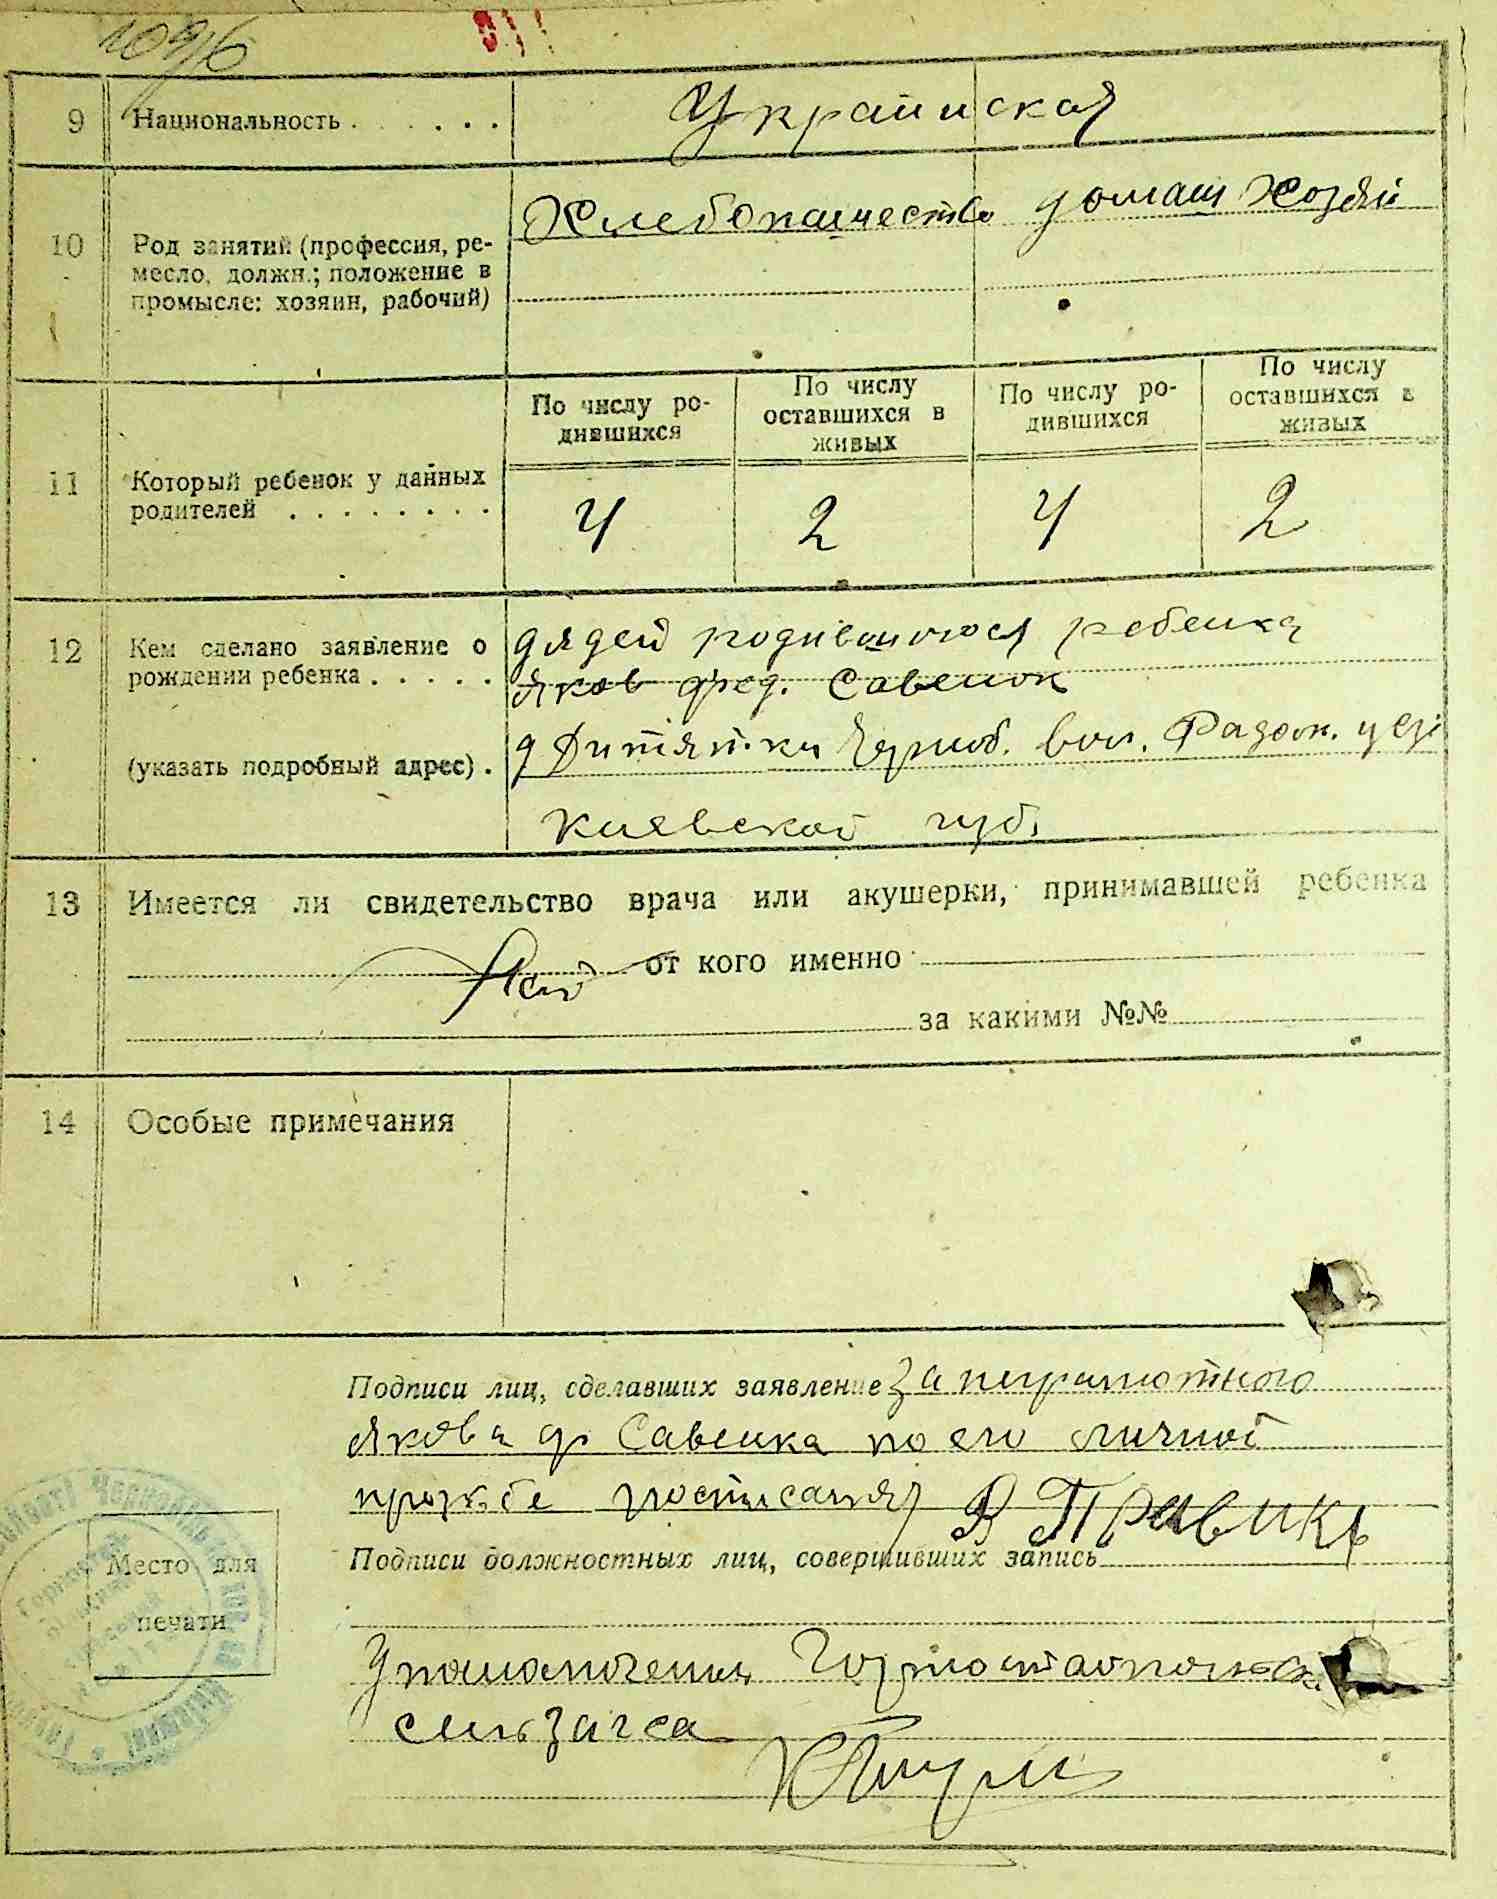 1096
9 Национальность . . . . . . Украинская
10 Род занятий (профессия, ре-
месло, должн.; положение в
промысле: хозяин, рабочий)
Хлебопашество домаш хозяй
11 Который ребенок у данных
родителей . . . . . . . .
По числу ро-
дившихся
По числу
оставшихся в
живых
По числу ро-
дившихся
По числу
оставшихся в
живых
4 2 4 2
12 Кем сделано заявление о
рождении ребенка . . . . .
(указать подробный адрес) .
дядей родившогося ребенка
Яков фед. Савенок
д Дитятки Черноб. вол. Радом. уез
Киевской губ.
13 Имеется ли свидетельство врача или акушерки, принимавшей ребенка
от кого именно
за какими №№
14 Особые примечания
Подписи лиц, сделавших заявление За неграмотного
Якова ф Савенка по его личной
прозьбе росписался В Правик
Подписи должностных лиц, совершивших запись
Место для
печати
Уполномочений Горностайпольск
сельзагса